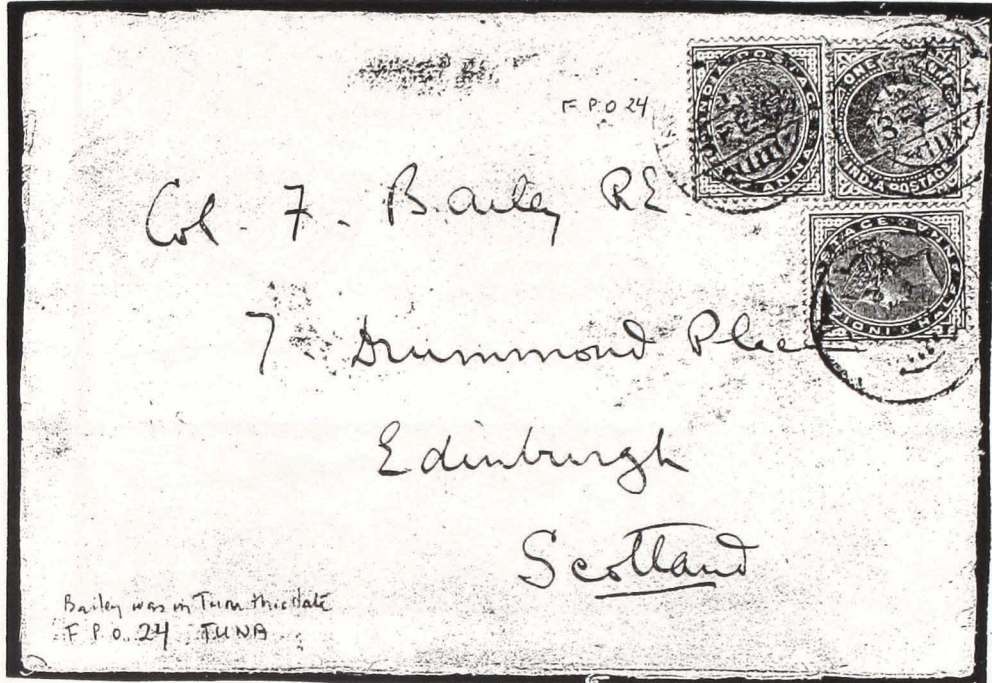 F P O 24
INDIA POSTAGE
ANNAS
ONE
INDIA POSTAGE
HALF
Col. F. Bailey RE
7 Drummond Place
Edinburgh
Scotland
Bailey was in Tuna this date
F P O. 24 TUNA